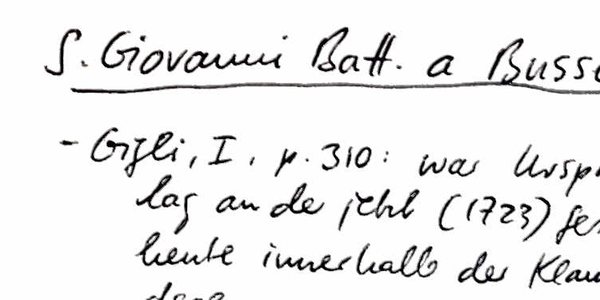 S. Giovanni Batt. a Busse
- Gigli, I, p. 310: war Urspr
lag an de jetzt (1723) ges
heute innerhalb der Klau